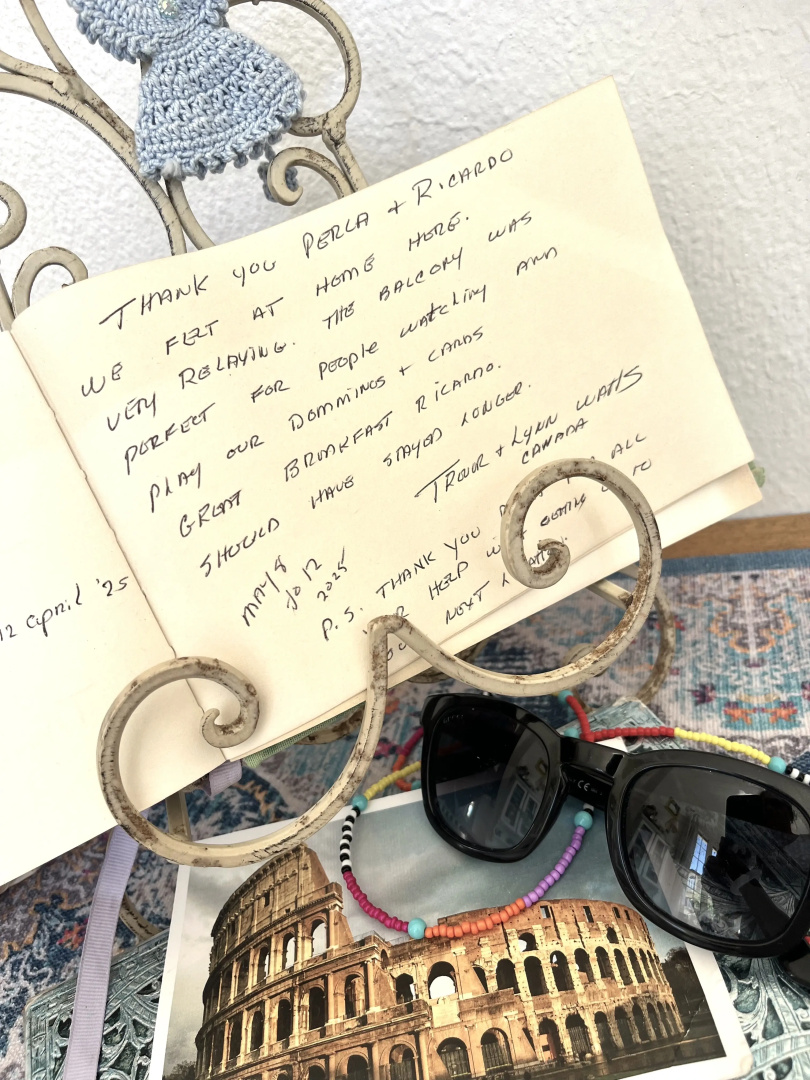 THANK YOU PERLA + RICARDO
WE FELT AT HOME HERE.
VERY RELAXING. THE BALCONY WAS
PERFECT FOR PEOPLE watching AND
PLAY OUR DOMMINOS + CARDS
GREAT BREAKFAST RICARDO.
SHOULD HAVE STAYED LONGER.
TREVOR + LYNN WATTS
CANADA
MAY 8
TO 12
2025
P.S. THANK YOU ALL
HELP TO
NEXT
12 april '25